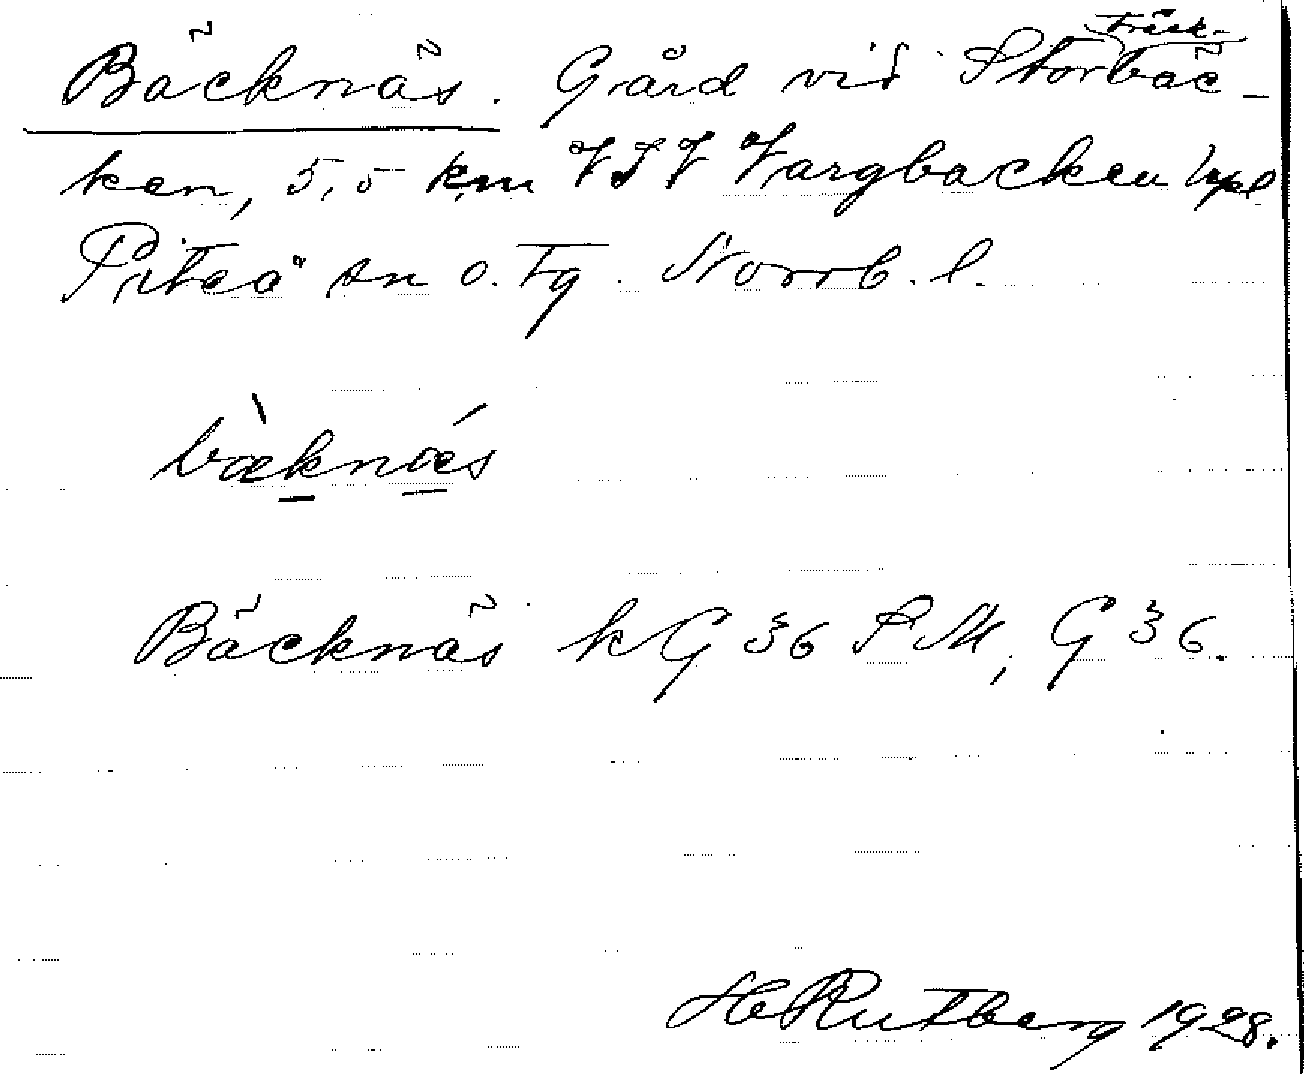 Bäcknäs. Gård vid Storträskbäc-
ken, 5,5 km VSV Vargbacken hpl
Piteå sn o. tg. Norrb. l.
bæ̀knǽs
Bäcknäs kG 36 SM, G 36.
H Rutberg 1928.